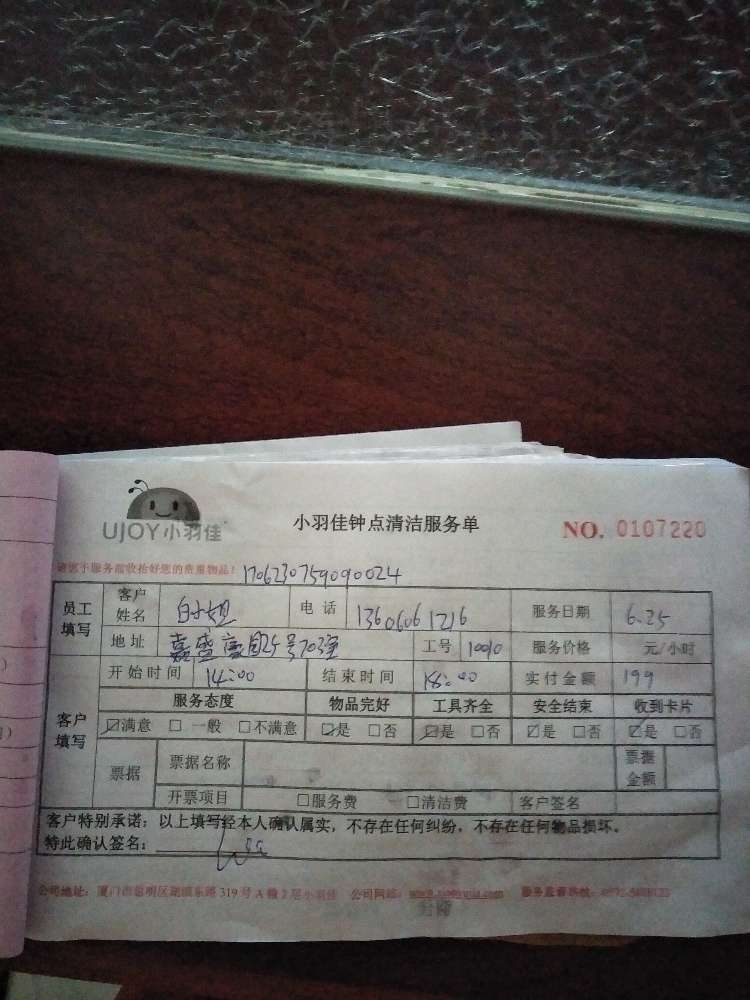 UJOY小羽佳
小羽佳钟点清洁服务单
NO. 0107220
请您于服务前收拾好您的贵重物品!
1706230759090024
员工填写 客户姓名 白小姐 电话 13606061216 服务日期 6.25
地址 嘉盛豪园 号703室 工号 10010 服务价格 元/小时
客户填写 开始时间 14:00 结束时间 18:00 实付金额 199
服务态度 物品完好 工具齐全 安全结束 收到卡片
☑满意 □一般 □不满意 ☑是 □否 ☑是 □否 ☑是 □否 ☑是 □否
票据 票据名称 票据金额
开票项目 □服务费 □清洁费 客户签名
客户特别承诺:以上填写经本人确认属实,不存在任何纠纷,不存在任何物品损坏。
特此确认签名:
公司地址:厦门市思明区湖滨东路319号A幢2层小羽佳 公司网站: 服务监督热线: